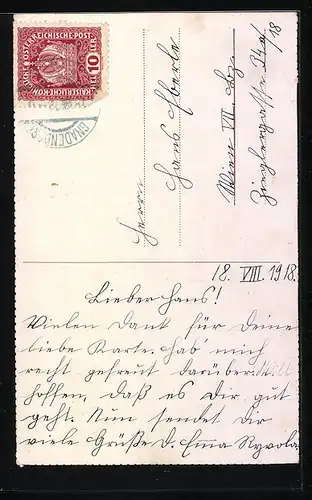 KAISERLICHE KÖN.
ÖSTERREICHISCHE POST
10
GNADENDORF
Herrn
Hans Eberle
Wien VII. Bez.
Zieglergasse
/18
18. VIII. 1918.
Lieber Hans!
Vielen Dank für Deine
liebe Karte, hab' mich
recht gefreut darüber. Will
hoffen, daß es Dir gut
geht. Nun sendet Dir
viele Grüße D. Emma Ryvola